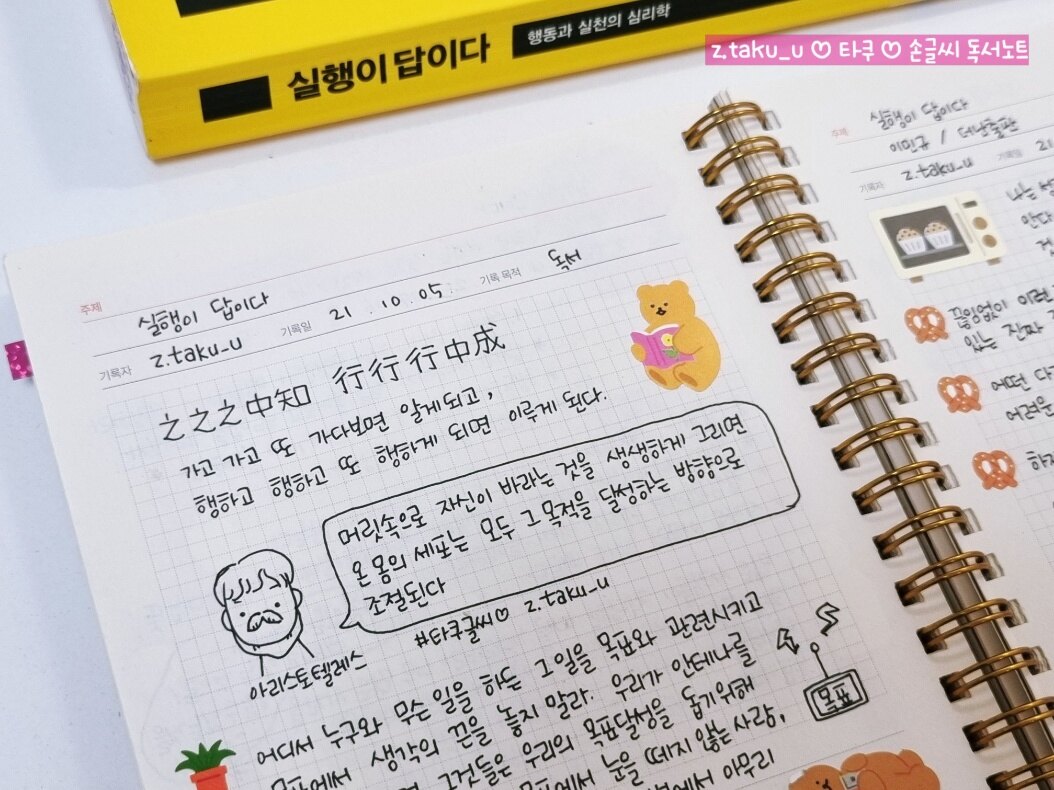 실행이 답이다
행동과 실천의 심리학
z.taku_u ♡ 타쿠 ♡ 손글씨 독서노트
주제 실행이 답이다
기록자 z.taku_u 기록일 21.10.05. 기록 목적 독서
之之之中知 行行行中成
가고 가고 또 가다보면 알게되고,
행하고 행하고 또 행하게 되면 이루게 된다.
머릿속으로 자신이 바라는 것을 생생하게 그리면
온 몸의 세포는 모두 그 목적을 달성하는 방향으로
조절된다
#타쿠글씨♡ z.taku_u
아리스토텔레스
어디서 누구와 무슨 일을 하든 그 일을 목표와 관련시키고
목표에서 생각의 끈을 놓지 말라. 우리가 안테나를
그것들은 우리의 목표달성을 돕기위해
목표에서 눈을 떼지 않는 사람,
에서 아무리
목표
주제 실행이 답이다
이민규 / 더난출판
기록자 z.taku_u 기록일 21
나는
안다
끊임없이 이런
있는 진짜
어떤
어려운
하지